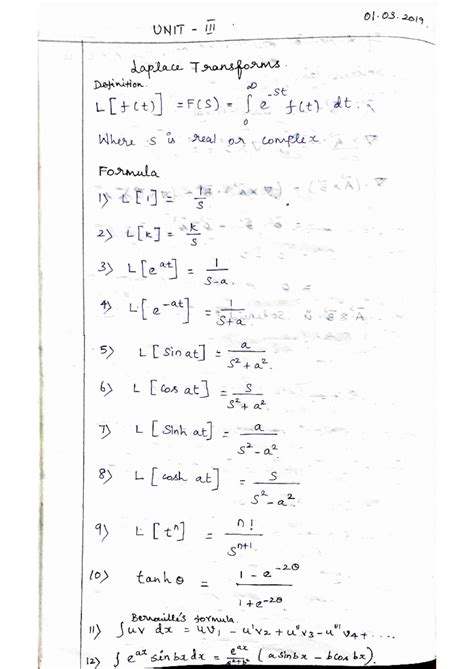 01.03.2019
UNIT - III
Laplace Transforms.
Definition.
L[f(t)] = F(S) = ∫₀^∞ e^-st f(t) dt.
Where s is real or complex.
Formula
1) L[1] = 1/s
2) L[k] = k/s
3) L[e^at] = 1/s-a
4) L[e^-at] = 1/s+a
5) L[sin at] = a/s²+a²
6) L[cos at] = s/s²+a²
7) L[sinh at] = a/s²-a²
8) L[cosh at] = s/s²-a²
9) L[t^n] = n!/s^n+1
10) tanhθ = 1-e^-2θ/1+e^-2θ
Bernoulli's formula.
11) ∫uv dx = uv₁ - u'v₂ + u''v₃ - u'''v₄ + ....
12) ∫e^ax sinbx dx = e^ax/a²+b² (a sinbx - b cos bx)